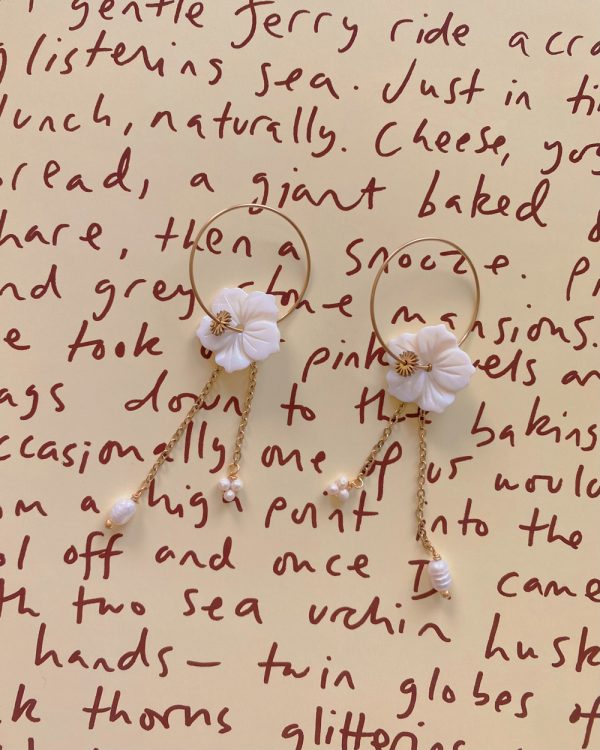 gentle ferry ride acro
glistening sea. Just in ti
lunch, naturally. Cheese, yog
read, a giant baked
hare, then a snooze. Pi
nd grey stone mansions.
e took pink els an
ags down to the baking
ccasionally one of us would
om a high point into the
ol off and once I came
th two sea urchin husk
hands— twin globes of
k thorns glittering